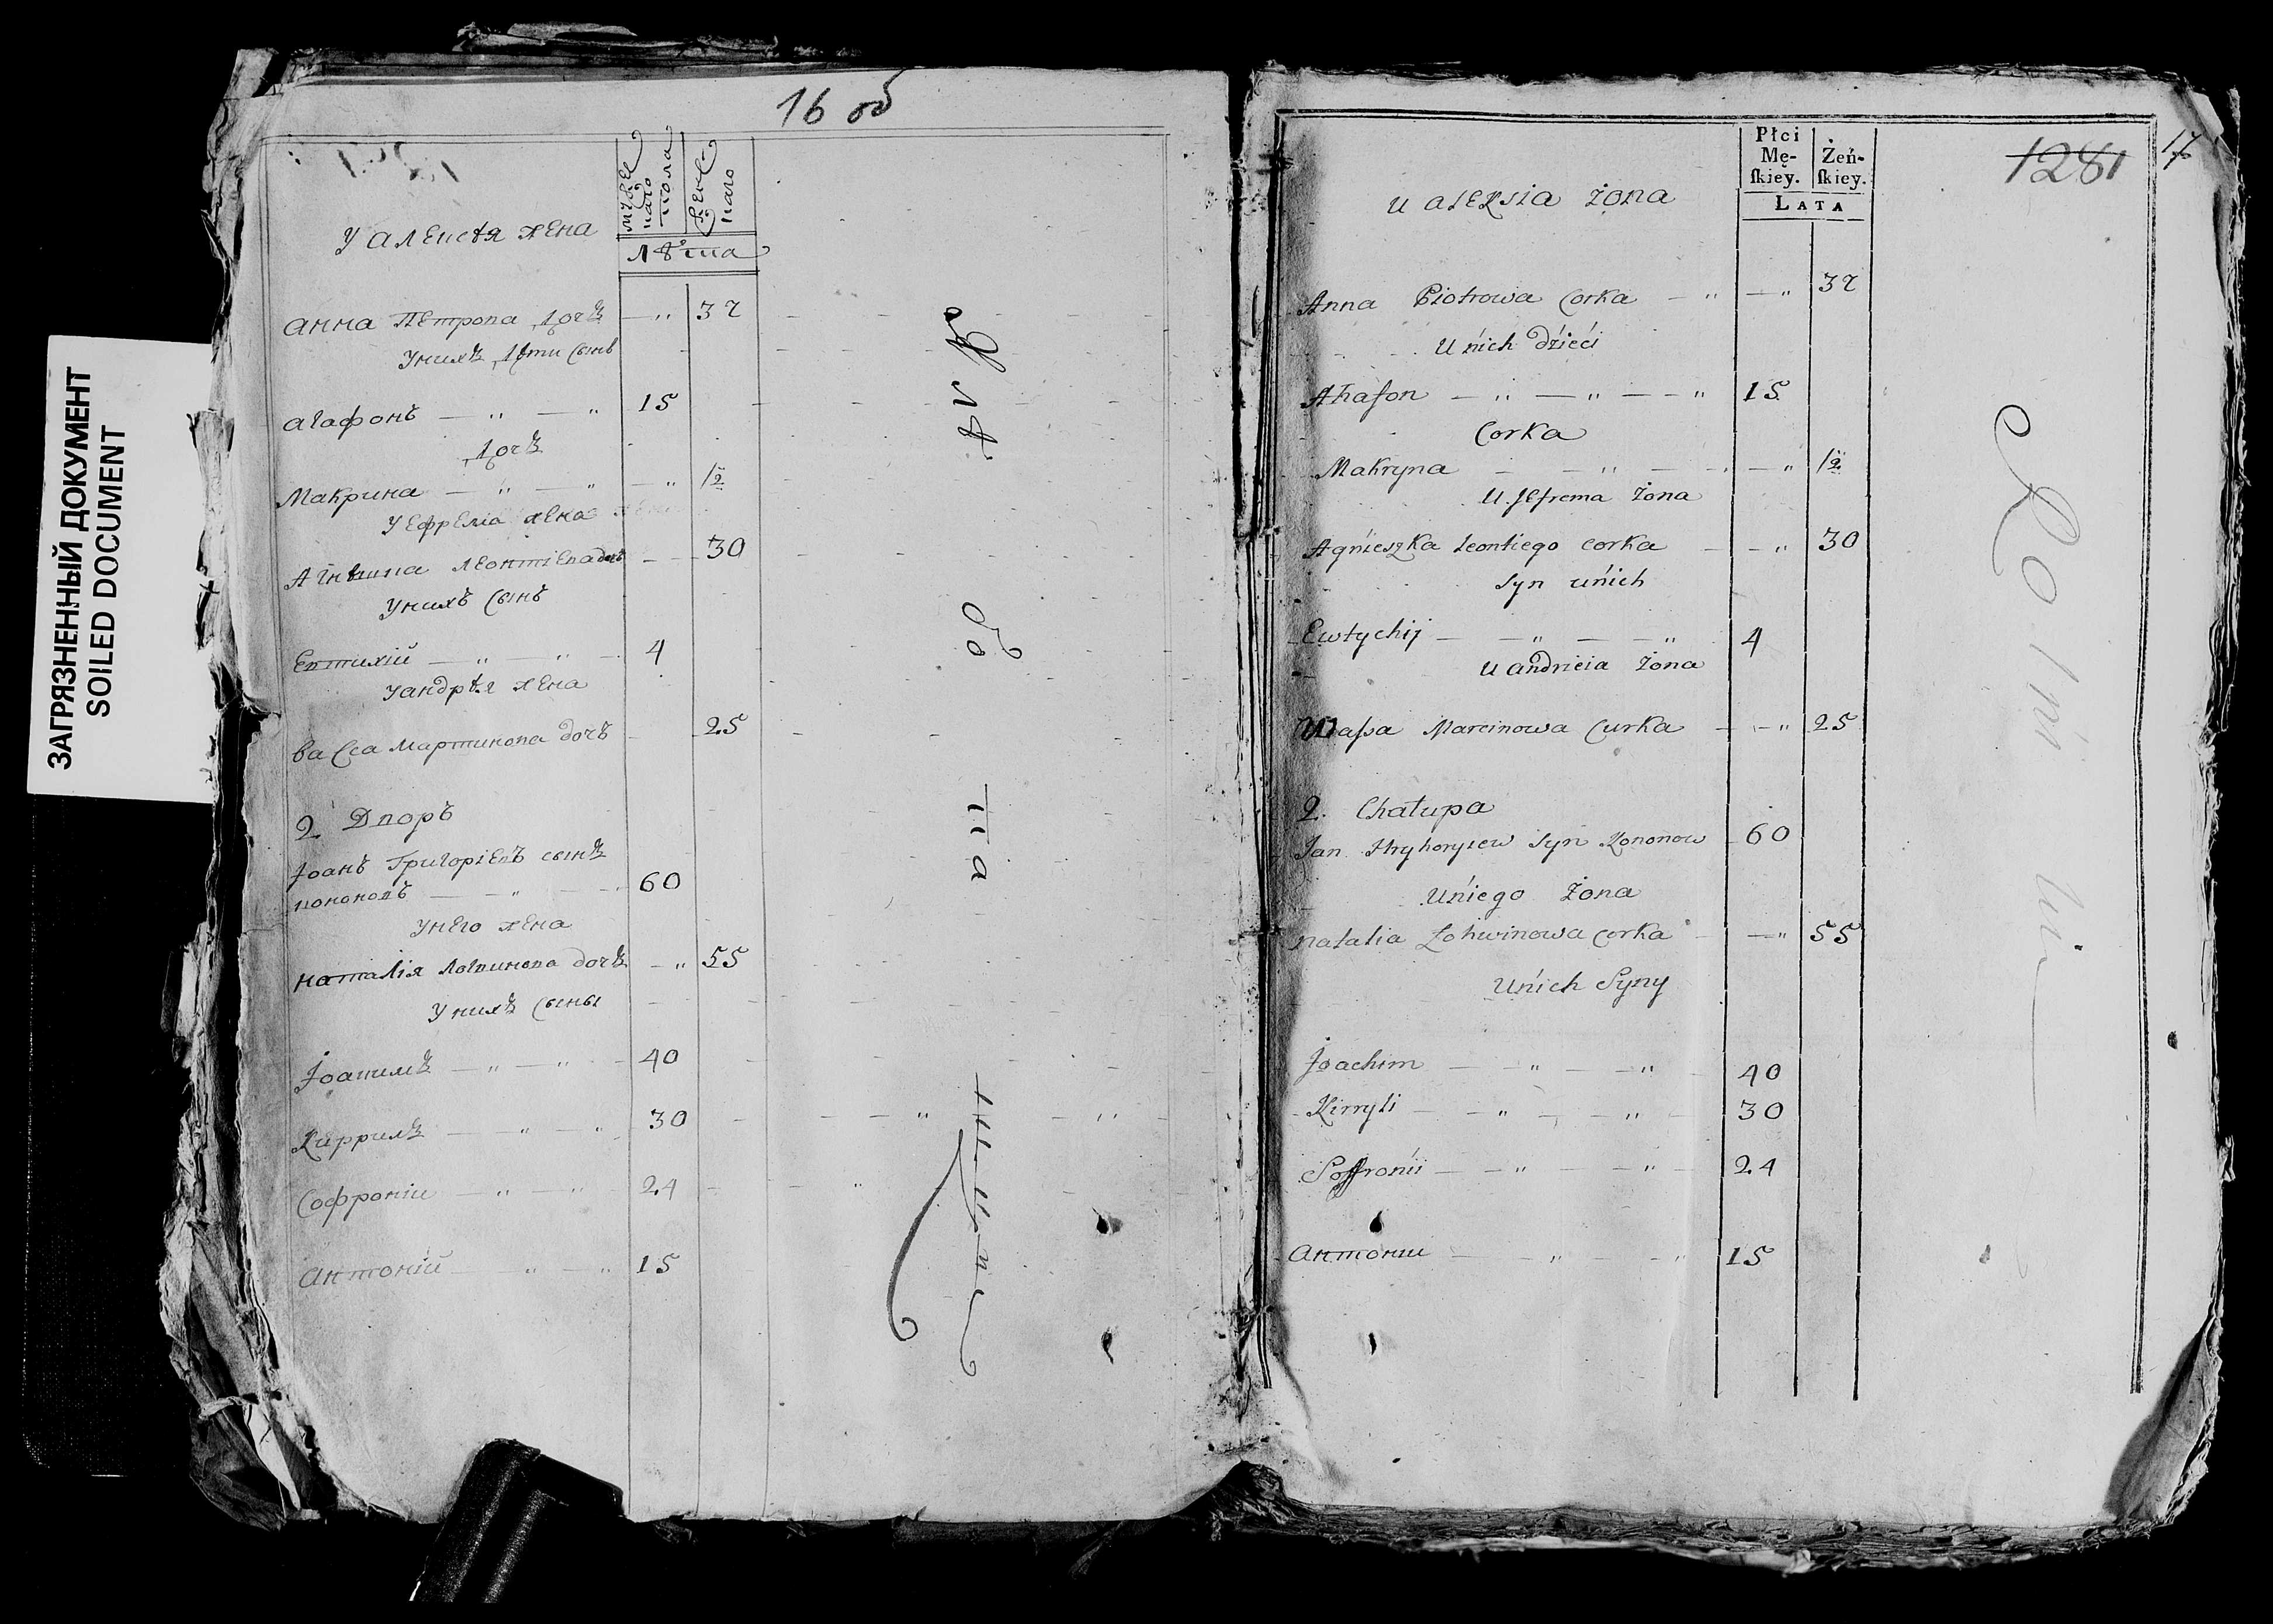 ЗАГРЯЗНЕННЫЙ ДОКУМЕНТ
SOILED DOCUMENT
16 об
У Алексѣя жена
Лѣта
Анна Петрова дочъ — „ 32
У нихъ дѣти сынъ
Агафонъ — „ — „ 15
дочъ
Макрина — „ — „ — „ 1/2
У Ефрема жена
Агнѣшка Леонтіева дочъ — — 30
У нихъ сынъ
Евтихій — „ — „ — 4
У Андрѣя жена
Васса Мартинова дочъ — — 25
2 Дворъ
Іоанъ Григоріевъ сынъ
Кононовъ — „ — 60
У него жена
Наталія Логвинова дочъ — „ 55
У нихъ сыны
Іоакимъ — „ — „ — 40
Кирилъ — „ — „ 30
Софроній — „ — „ 24
Антоній — „ — „ 15
Płci
Mę-
ſkiey.
Żeń-
ſkiey.
LATA
1281
17
U Alexsia Żona
Anna Piotrowa Corka — „ — „ 32
U nich dzieci
Ahafon — „ — „ — — „ 15
Corka
Makryna — — „ — — „ 1/2
U Jefrema Żona
Agnieszka Leontiego corka — — „ 30
Syn u nich
Ewtychij — — „ — — „ 4
U Andrieia Żona
Wassa Marcinowa Curka — — „ 25
2. Chałupa
Jan Hryhoryiew Syn Kononow 60
U niego Żona
Natalia Lohwinowa corka — „ 55
U nich Syny
Joachim — — „ — — „ 40
Kirryli — — „ — — „ 30
Soffronii — — „ — — „ 24
Антоніи — — „ — — „ 15
Rolnik